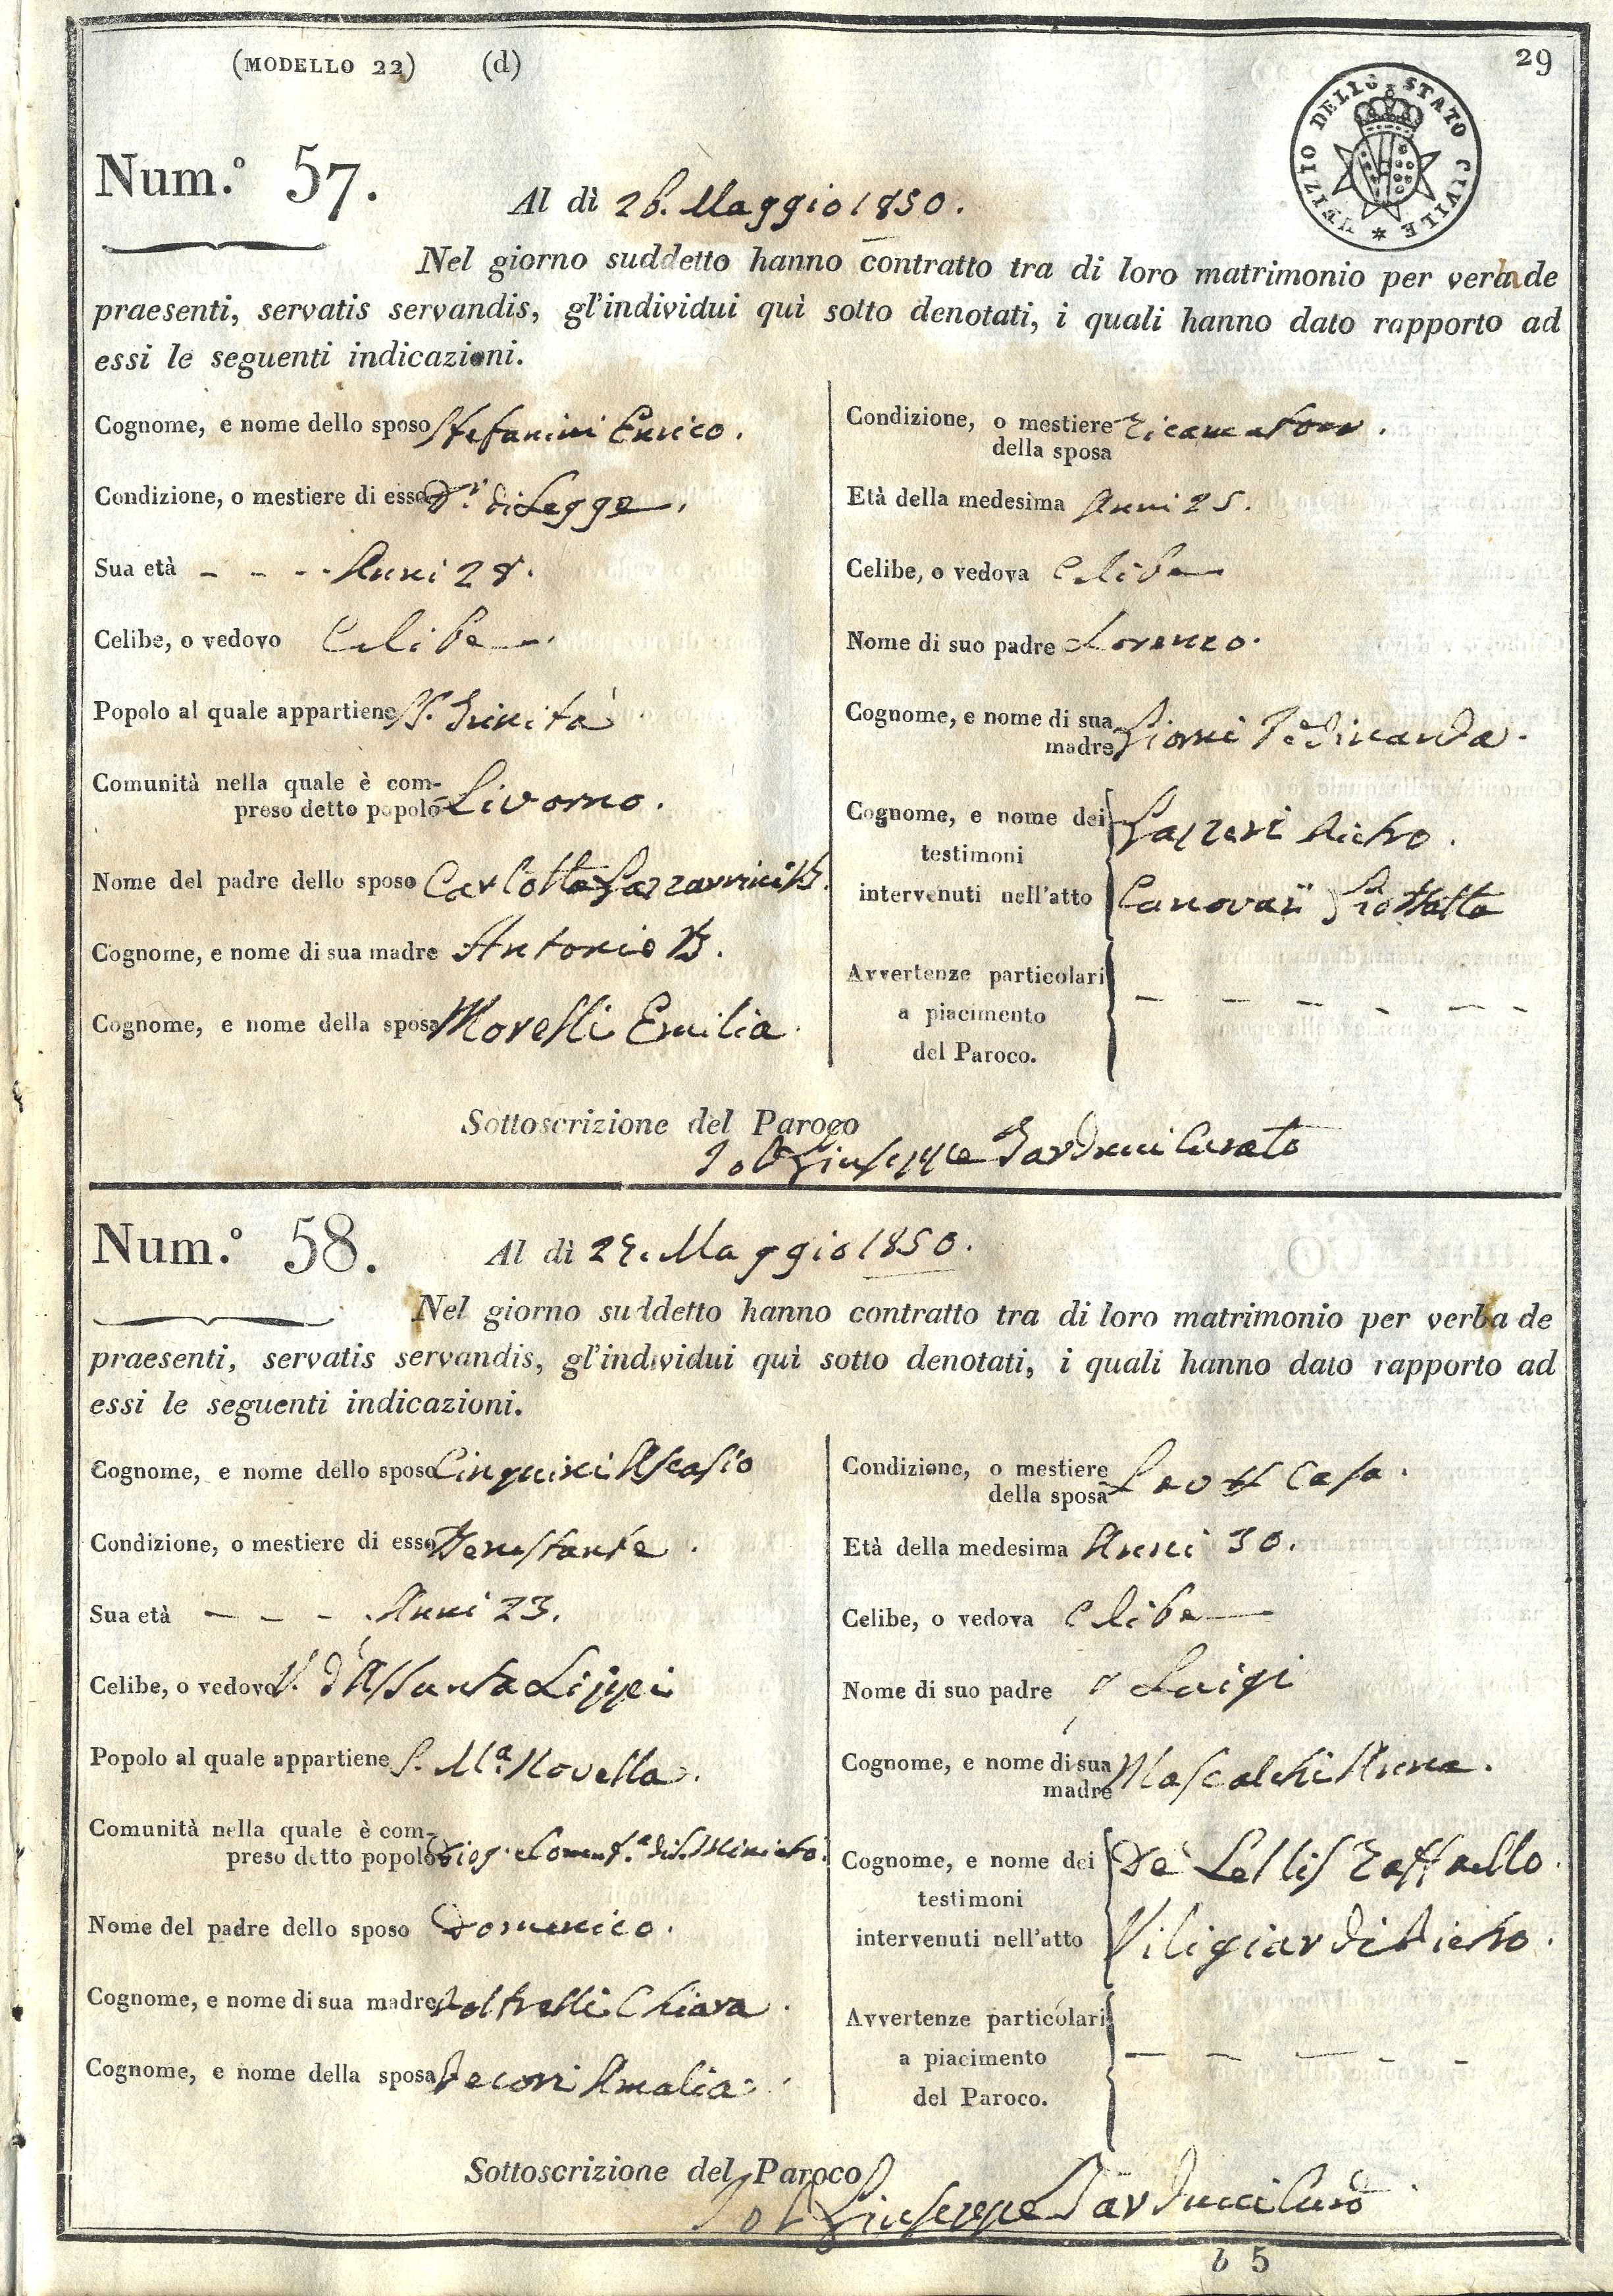 (MODELLO 22) (d)
29
UFIZIO DELLO STATO CIVILE
Num.° 57.
Al dì 26. Maggio 1850.
Nel giorno suddetto hanno contratto tra di loro matrimonio per verba de
praesenti, servatis servandis, gl'individui quì sotto denotati, i quali hanno dato rapporto ad
essi le seguenti indicazioni.
Cognome, e nome dello sposo Stefanini Enrico.
Condizione, o mestiere di esso Dr. di Legge.
Sua età - - - Anni 28.
Celibe, o vedovo Celibe
Popolo al quale appartiene SS. Trinità
Comunità nella quale è com-
preso detto popolo Livorno.
Nome del padre dello sposo Carlotta Lazzarini
Cognome, e nome di sua madre Antonio B.
Cognome, e nome della sposa Morelli Emilia.
Condizione, o mestiere
della sposa
Età della medesima Anni 25.
Celibe, o vedova Celibe
Nome di suo padre Lorenzo.
Cognome, e nome di sua
madre
Cognome, e nome dei Lazzeri Pietro.
testimoni
intervenuti nell'atto
Avvertenze particolari - - - - - -
a piacimento
del Paroco.
Sottoscrizione del Paroco
Giuseppe Tarducci Curato
Num.° 58.
Al dì Maggio 1850.
Nel giorno suddetto hanno contratto tra di loro matrimonio per verba de
praesenti, servatis servandis, gl'individui quì sotto denotati, i quali hanno dato rapporto ad
essi le seguenti indicazioni.
Cognome, e nome dello sposo Cinquini Ascasio
Condizione, o mestiere di esso Benestante.
Sua età - - - Anni 23.
Celibe, o vedovo V. d'Assunta Lippi
Popolo al quale appartiene S. Ma. Novella.
Comunità nella quale è com-
preso detto popolo
Nome del padre dello sposo Domenico.
Cognome, e nome di sua madre Poltrelli Chiara.
Cognome, e nome della sposa Pecori Amalia.
Condizione, o mestiere
della sposa Casa.
Età della medesima Anni 30.
Celibe, o vedova Celibe
Nome di suo padre Luigi
Cognome, e nome di sua
madre Mascalchi Anna.
Cognome, e nome dei De Lellis Raffaello.
testimoni
intervenuti nell'atto Viligiardi Pietro.
Avvertenze particolari
a piacimento - - - - -
del Paroco.
Sottoscrizione del Paroco
Giuseppe Tarducci
b 5